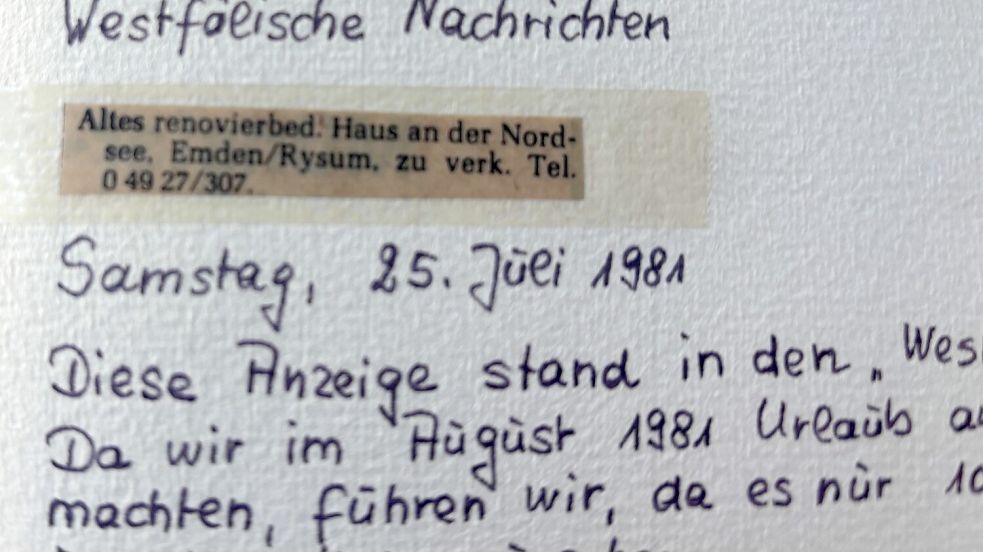 Westfälische Nachrichten
Altes renovierbed. Haus an der Nord-
see, Emden/Rysum, zu verk. Tel.
0 49 27/307.
Samstag, 25. Juli 1981
Diese Anzeige stand in den „Wes
Da wir im August 1981 Urlaub a
machten, fuhren wir, da es nur 10